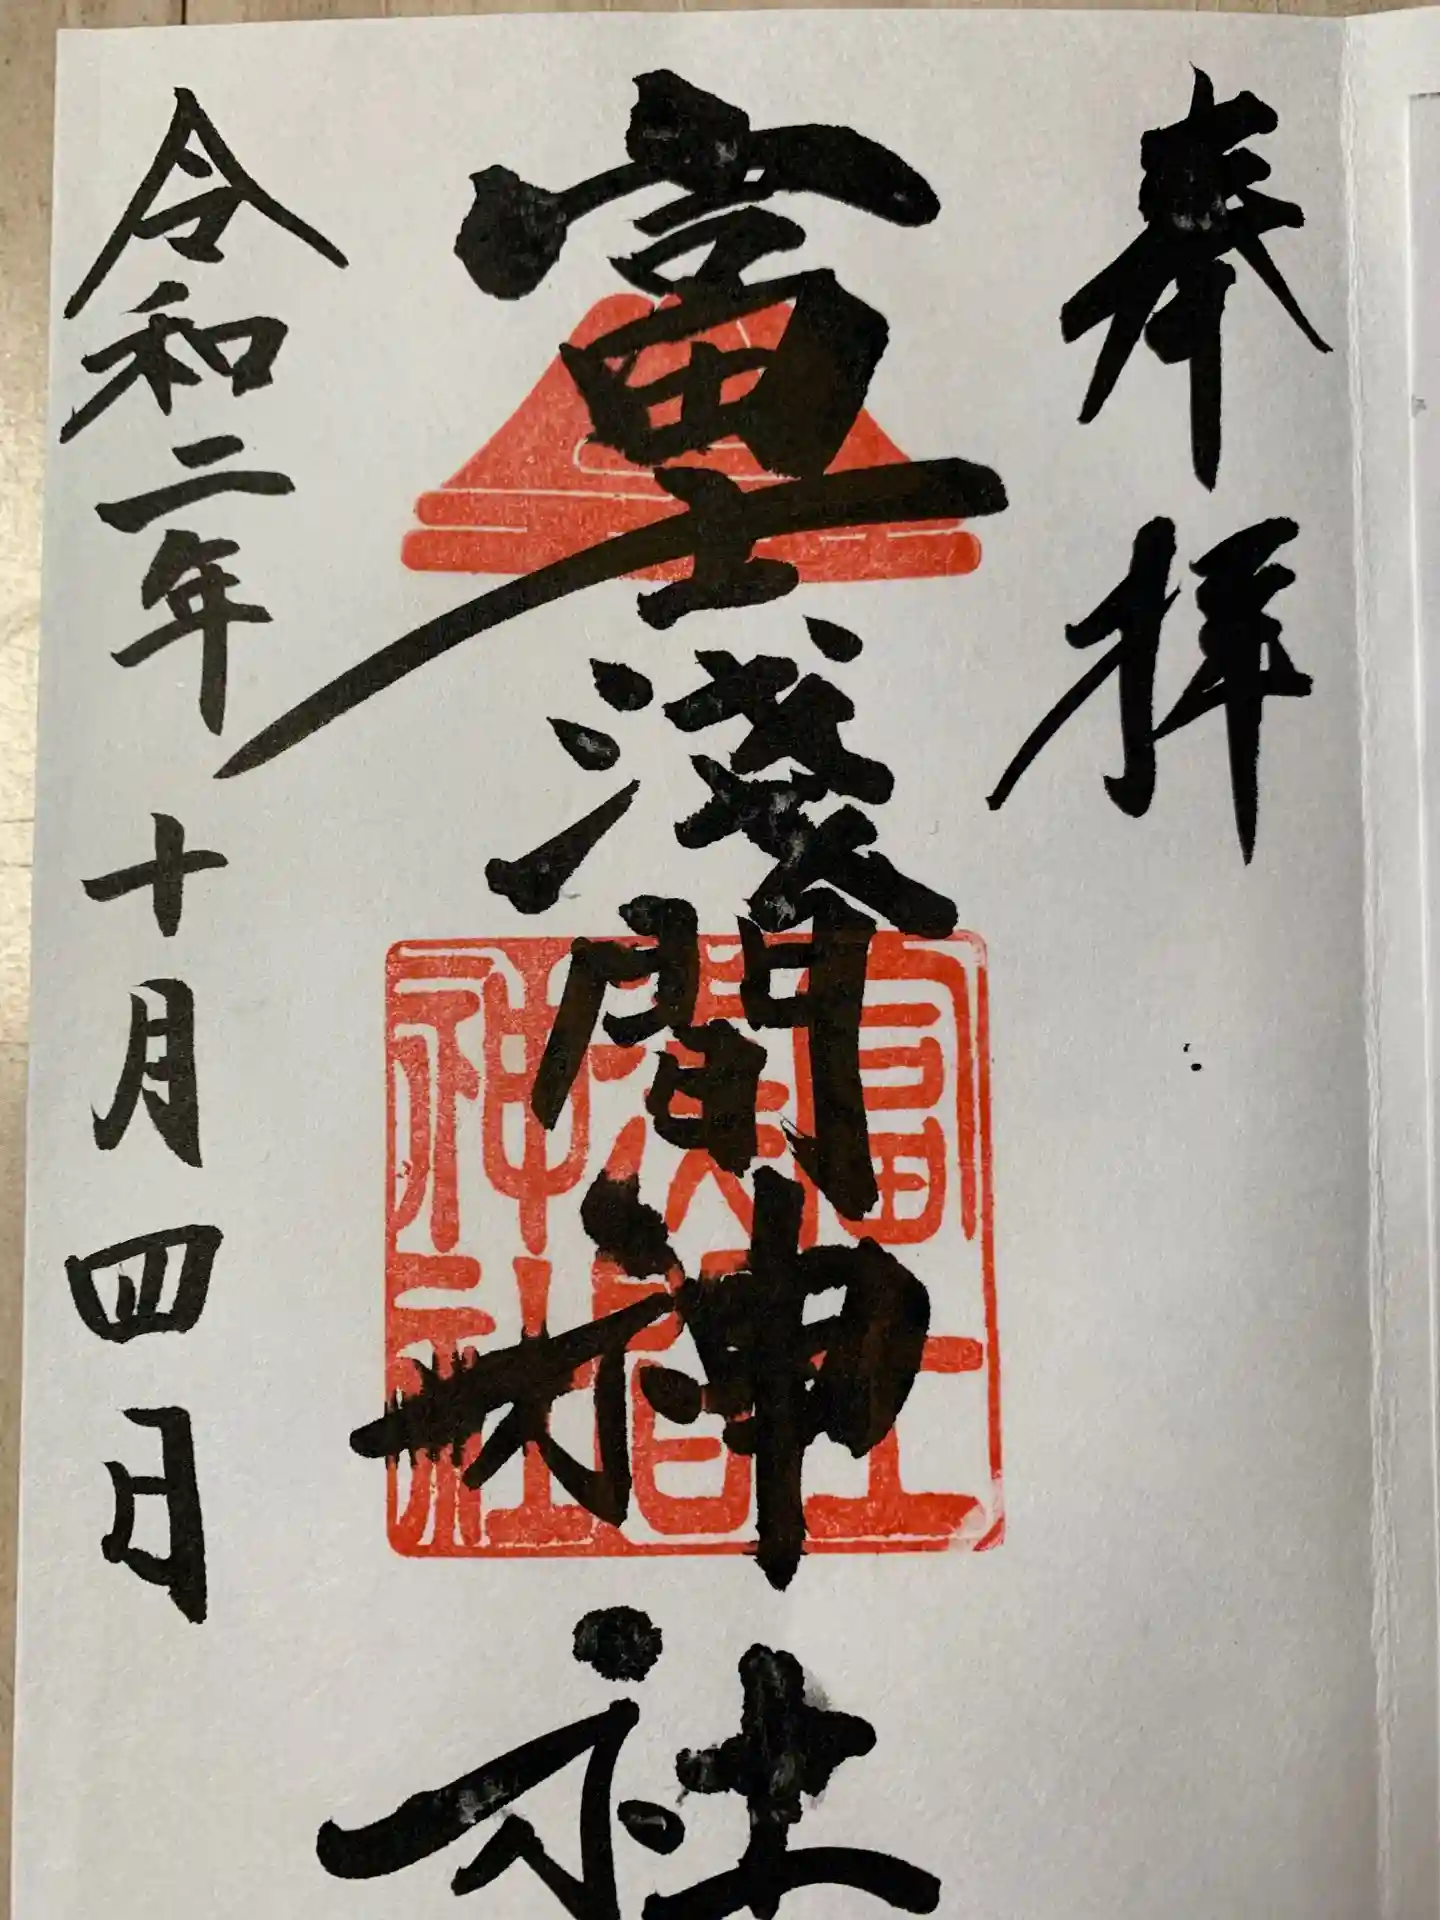 奉拝
富士浅間神社
富士
浅間
神社
令和二年十月四日